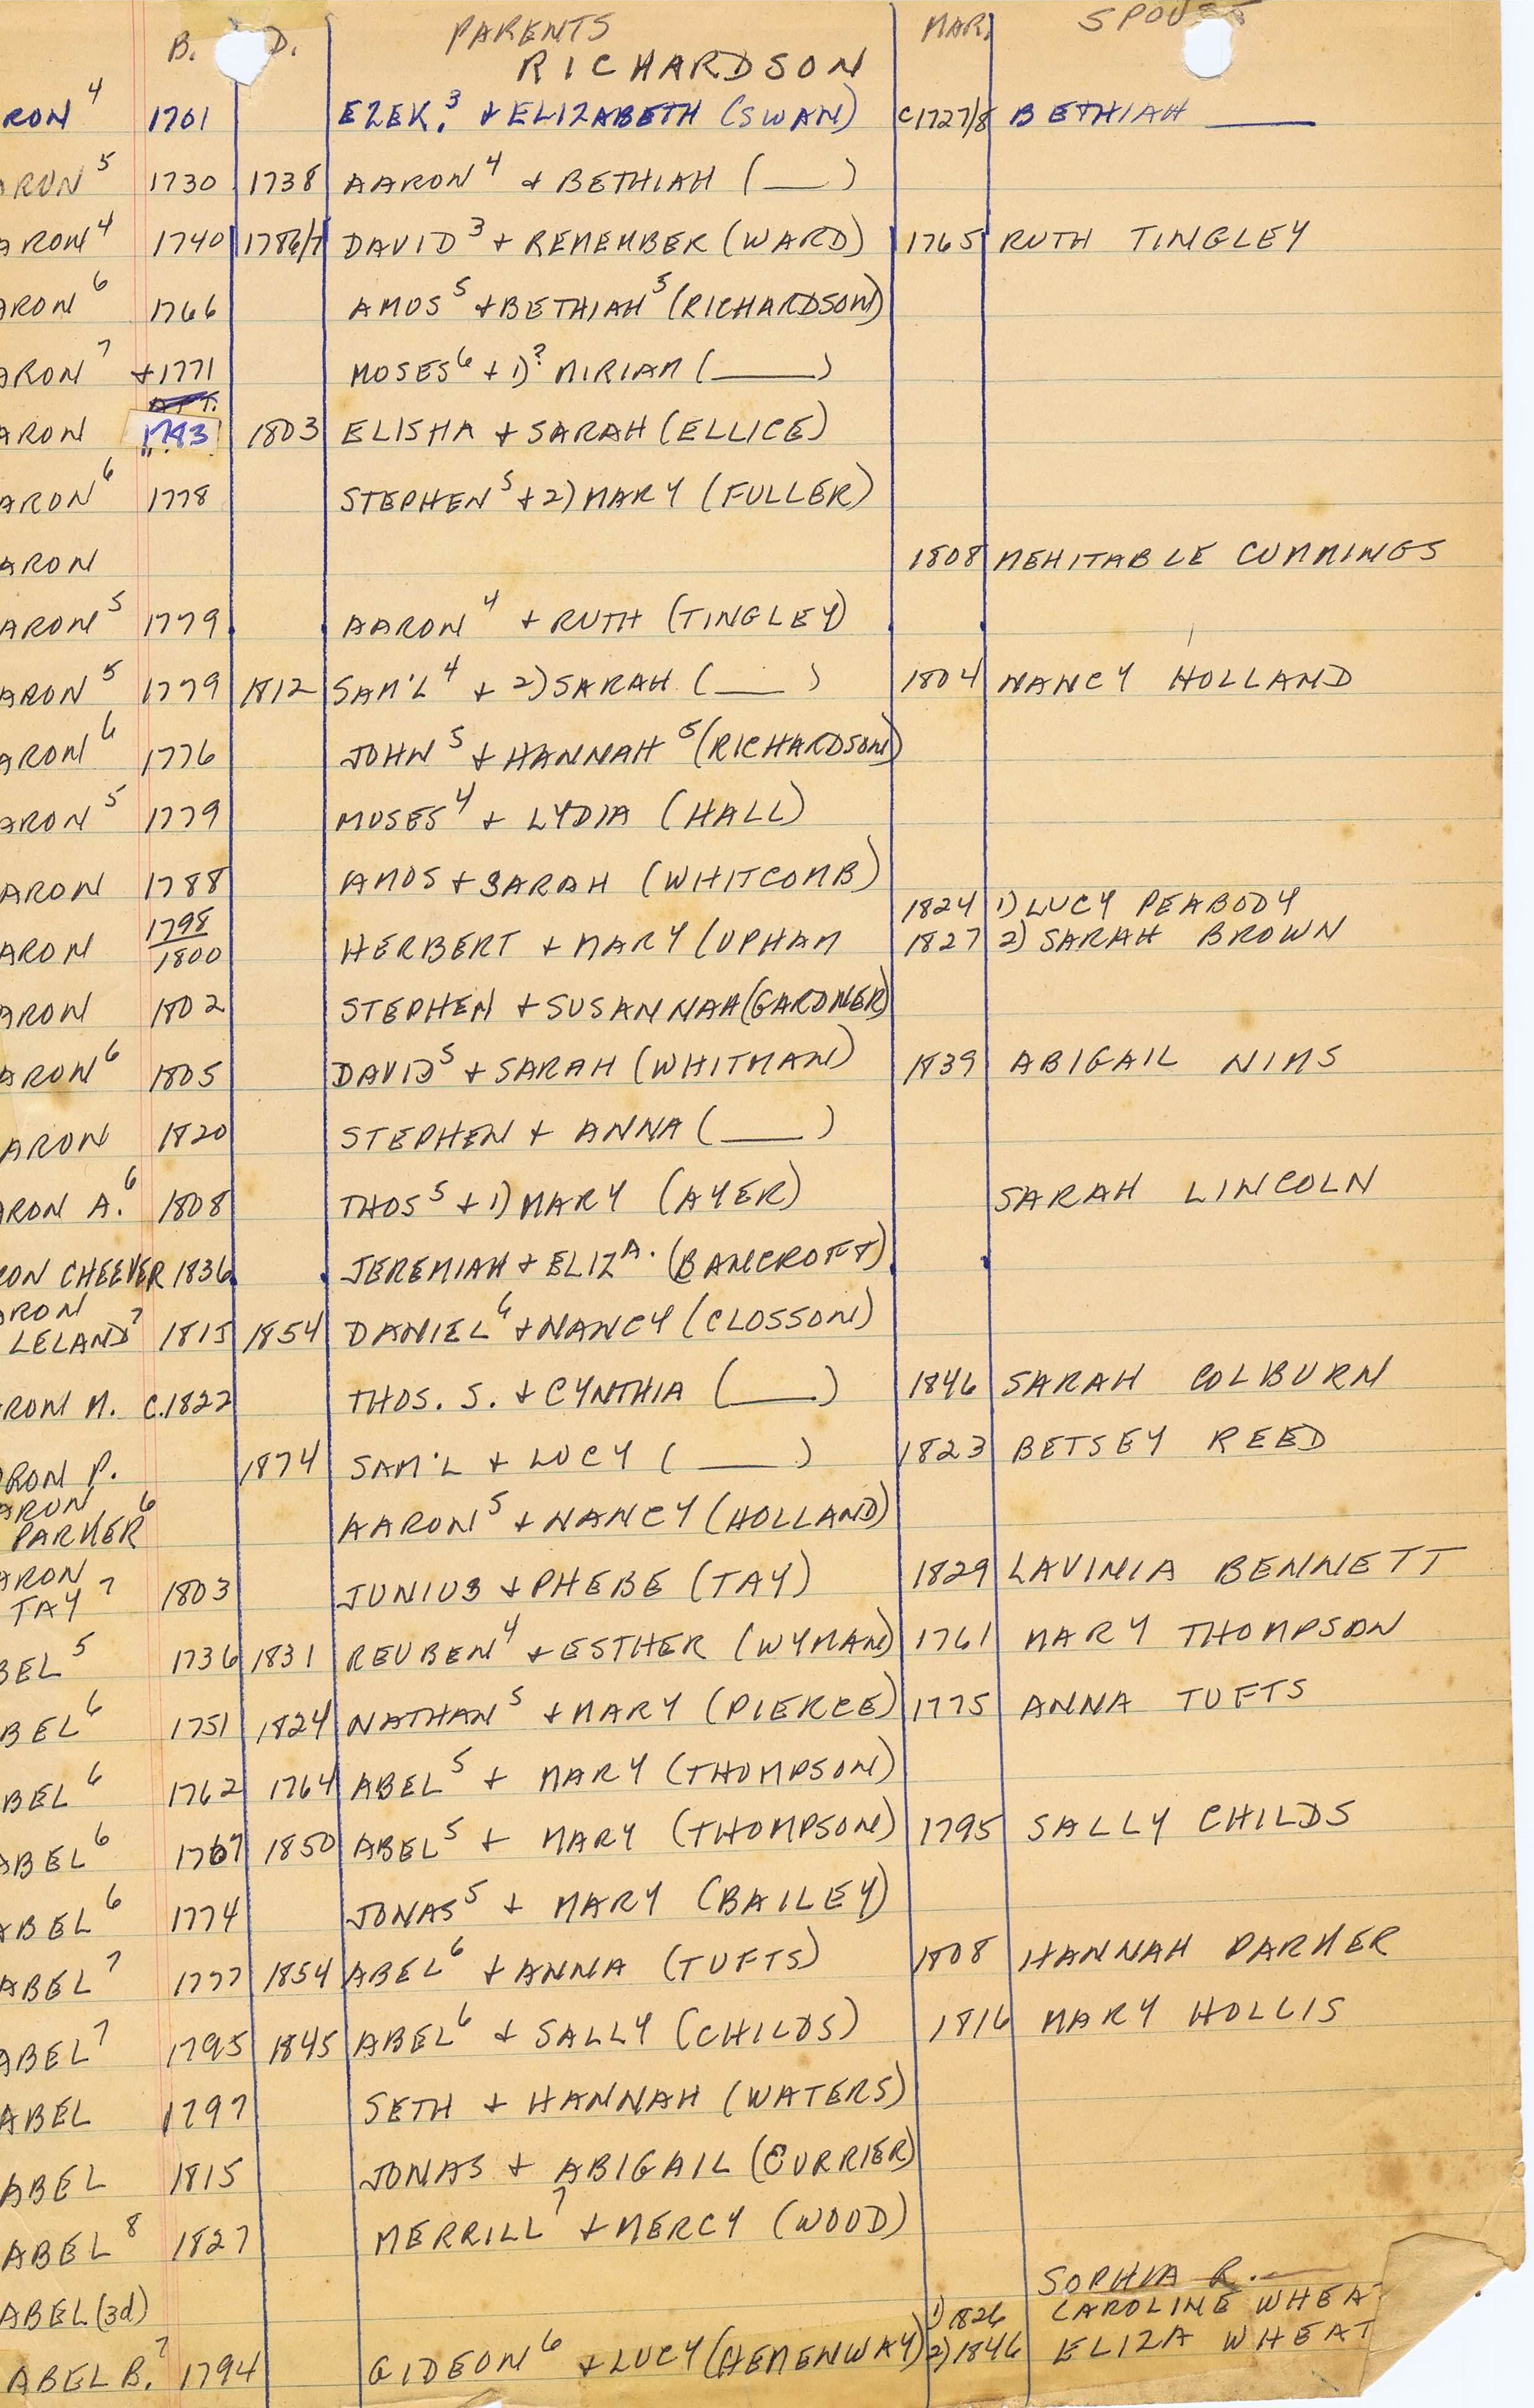 B. D. PARENTS MAR. SPOUSE
RICHARDSON
RON⁴ 1701 EZEK.³ + ELIZABETH (SWAN) C1727/8 BETHIAH ____
ARON⁵ 1730 1738 AARON⁴ + BETHIAH (___)
ARON⁴ 1740 1786/7 DAVID³ + REMEMBER (WARD) 1765 RUTH TINGLEY
ARON⁶ 1766 AMOS⁵ + BETHIAH⁵ (RICHARDSON)
ARON⁷ +1771 MOSES⁶ + 1)? MIRIAM (____)
APT.
ARON 1783 1803 ELISHA + SARAH (ELLICE)
ARON⁶ 1778 STEPHEN⁵ + 2) MARY (FULLER)
ARON 1808 MEHITABLE CUMMINGS
ARON⁵ 1779 AARON⁴ + RUTH (TINGLEY)
ARON⁵ 1779 1812 SAM'L⁴ + 2) SARAH (___) 1804 NANCY HOLLAND
ARON⁶ 1776 JOHN⁵ + HANNAH⁵ (RICHARDSON)
ARON⁵ 1779 MOSES⁴ + LYDIA (HALL)
ARON 1788 AMOS + SARAH (WHITCOMB)
1824 1) LUCY PEABODY
ARON 1798/1800 HERBERT + MARY (UPHAM 1827 2) SARAH BROWN
ARON 1802 STEPHEN + SUSANNAH (GARDNER)
ARON⁶ 1805 DAVID⁵ + SARAH (WHITMAN) 1839 ABIGAIL NIMS
ARON 1820 STEPHEN + ANNA (____)
ARON A.⁶ 1808 THOS⁵ + 1) MARY (AYER) SARAH LINCOLN
RON CHEEVER 1836 JEREMIAH + ELIZᴬ. (BANCROFT)
ARON
LELAND⁷ 1815 1854 DANIEL⁶ + NANCY (CLOSSON)
RON M. C.1822 THOS. S. + CYNTHIA (____) 1846 SARAH COLBURN
ARON P. 1874 SAM'L + LUCY (____) 1823 BETSEY REED
ARON
PARKER⁶ AARON⁵ + NANCY (HOLLAND)
ARON
TAY⁷ 1803 JUNIUS + PHEBE (TAY) 1829 LAVINIA BENNETT
BEL⁵ 1736 1831 REUBEN⁴ + ESTHER (WYMAN) 1761 MARY THOMPSON
BEL⁶ 1751 1824 NATHAN⁵ + MARY (PIERCE) 1775 ANNA TUFTS
BEL⁶ 1762 1764 ABEL⁵ + MARY (THOMPSON)
ABEL⁶ 1767 1850 ABEL⁵ + MARY (THOMPSON) 1795 SALLY CHILDS
ABEL⁶ 1774 JONAS⁵ + MARY (BAILEY)
ABEL⁷ 1777 1854 ABEL⁶ + ANNA (TUFTS) 1808 HANNAH PARKER
ABEL⁷ 1795 1845 ABEL⁶ + SALLY (CHILDS) 1816 MARY HOLLIS
ABEL 1797 SETH + HANNAH (WATERS)
ABEL 1815 JONAS + ABIGAIL (CURRIER)
ABEL⁸ 1827 MERRILL⁷ + MERCY (WOOD)
SOPHIA R. ——
ABEL (3d) 1) 1826 CAROLINE WHEAT
ABEL B.⁷ 1794 GIDEON⁶ + LUCY (HEMENWAY) 2) 1846 ELIZA WHEAT